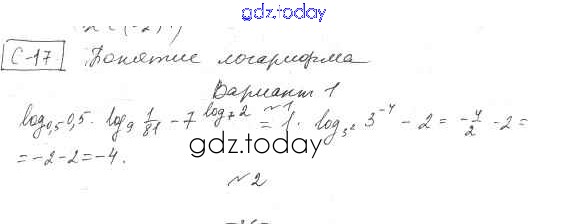 gdz.today
С-17 Понятие логарифма
Вариант 1
№1
log₀,₅ 0,5 · log₉ 1/81 − 7^(log₇ 2) = 1 · log₃² 3⁻⁴ − 2 = −4/2 − 2 =
gdz.today
= −2 − 2 = −4.
№2